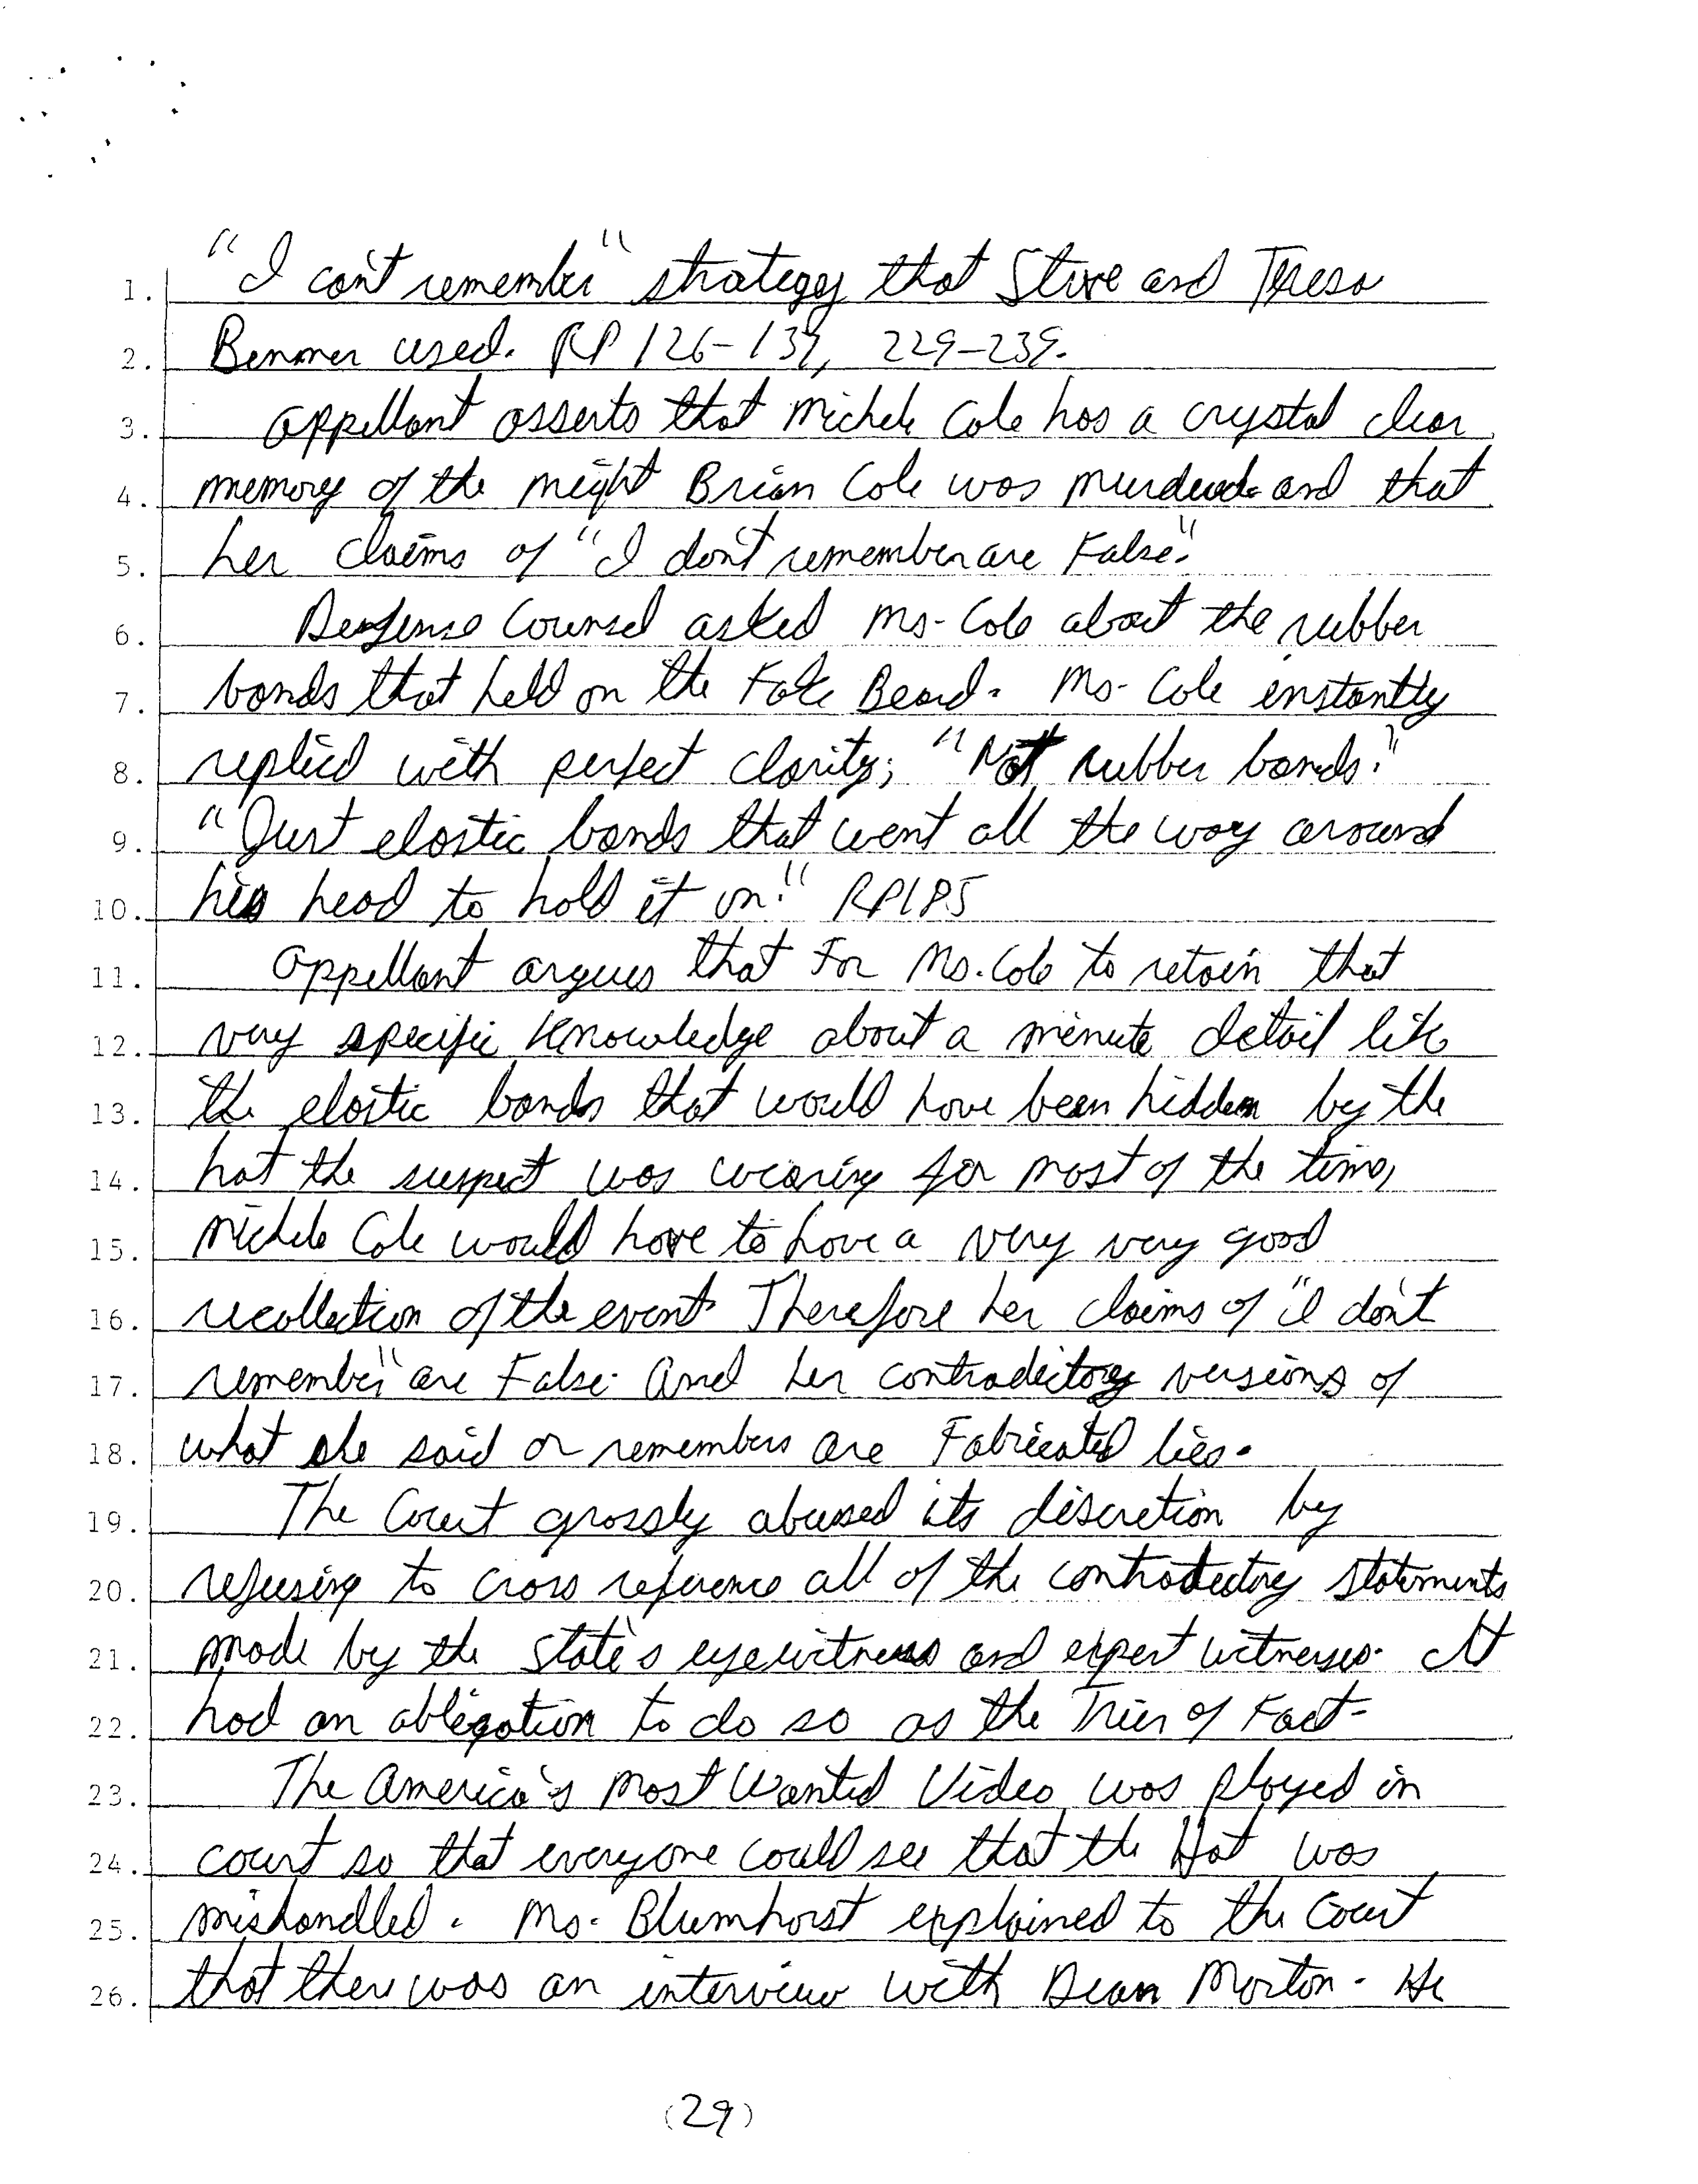 1. "I can't remember" strategy that Steve and Teresa
2. Benmer used. RP 126-139, 229-239.
3. appellant asserts that Michele Cole has a crystal clear
4. memory of the night Brian Cole was murdered and that
5. her claims of "I don't remember are False."
6. Defense Counsel asked Ms. Cole about the rubber
7. bands that held on the Fake Beard. Ms. Cole instantly
8. replied with perfect clarity; "Not rubber bands."
9. "Just elastic bands that went all the way around
10. his head to hold it on." RP185
11. appellant argues that For Ms. Cole to retain that
12. very specific knowledge about a minute detail like
13. the elastic bands that would have been hidden by the
14. hat the suspect was wearing for most of the time,
15. Michele Cole would have to have a very very good
16. recollection of the event. Therefore her claims of "I don't
17. remember" are False. And her contradictory versions of
18. what she said or remembers are Fabricated lies.
19. The Court grossly abused its discretion by
20. refusing to cross reference all of the contradictory statements
21. made by the State's eyewitness and expert witnesses. It
22. had an obligation to do so as the Trier of Fact.
23. The America's Most Wanted Video was played in
24. court so that everyone could see that the Hat was
25. mishandled. Ms. Blumhorst explained to the Court
26. that there was an interview with Dean Morton. He
(29)